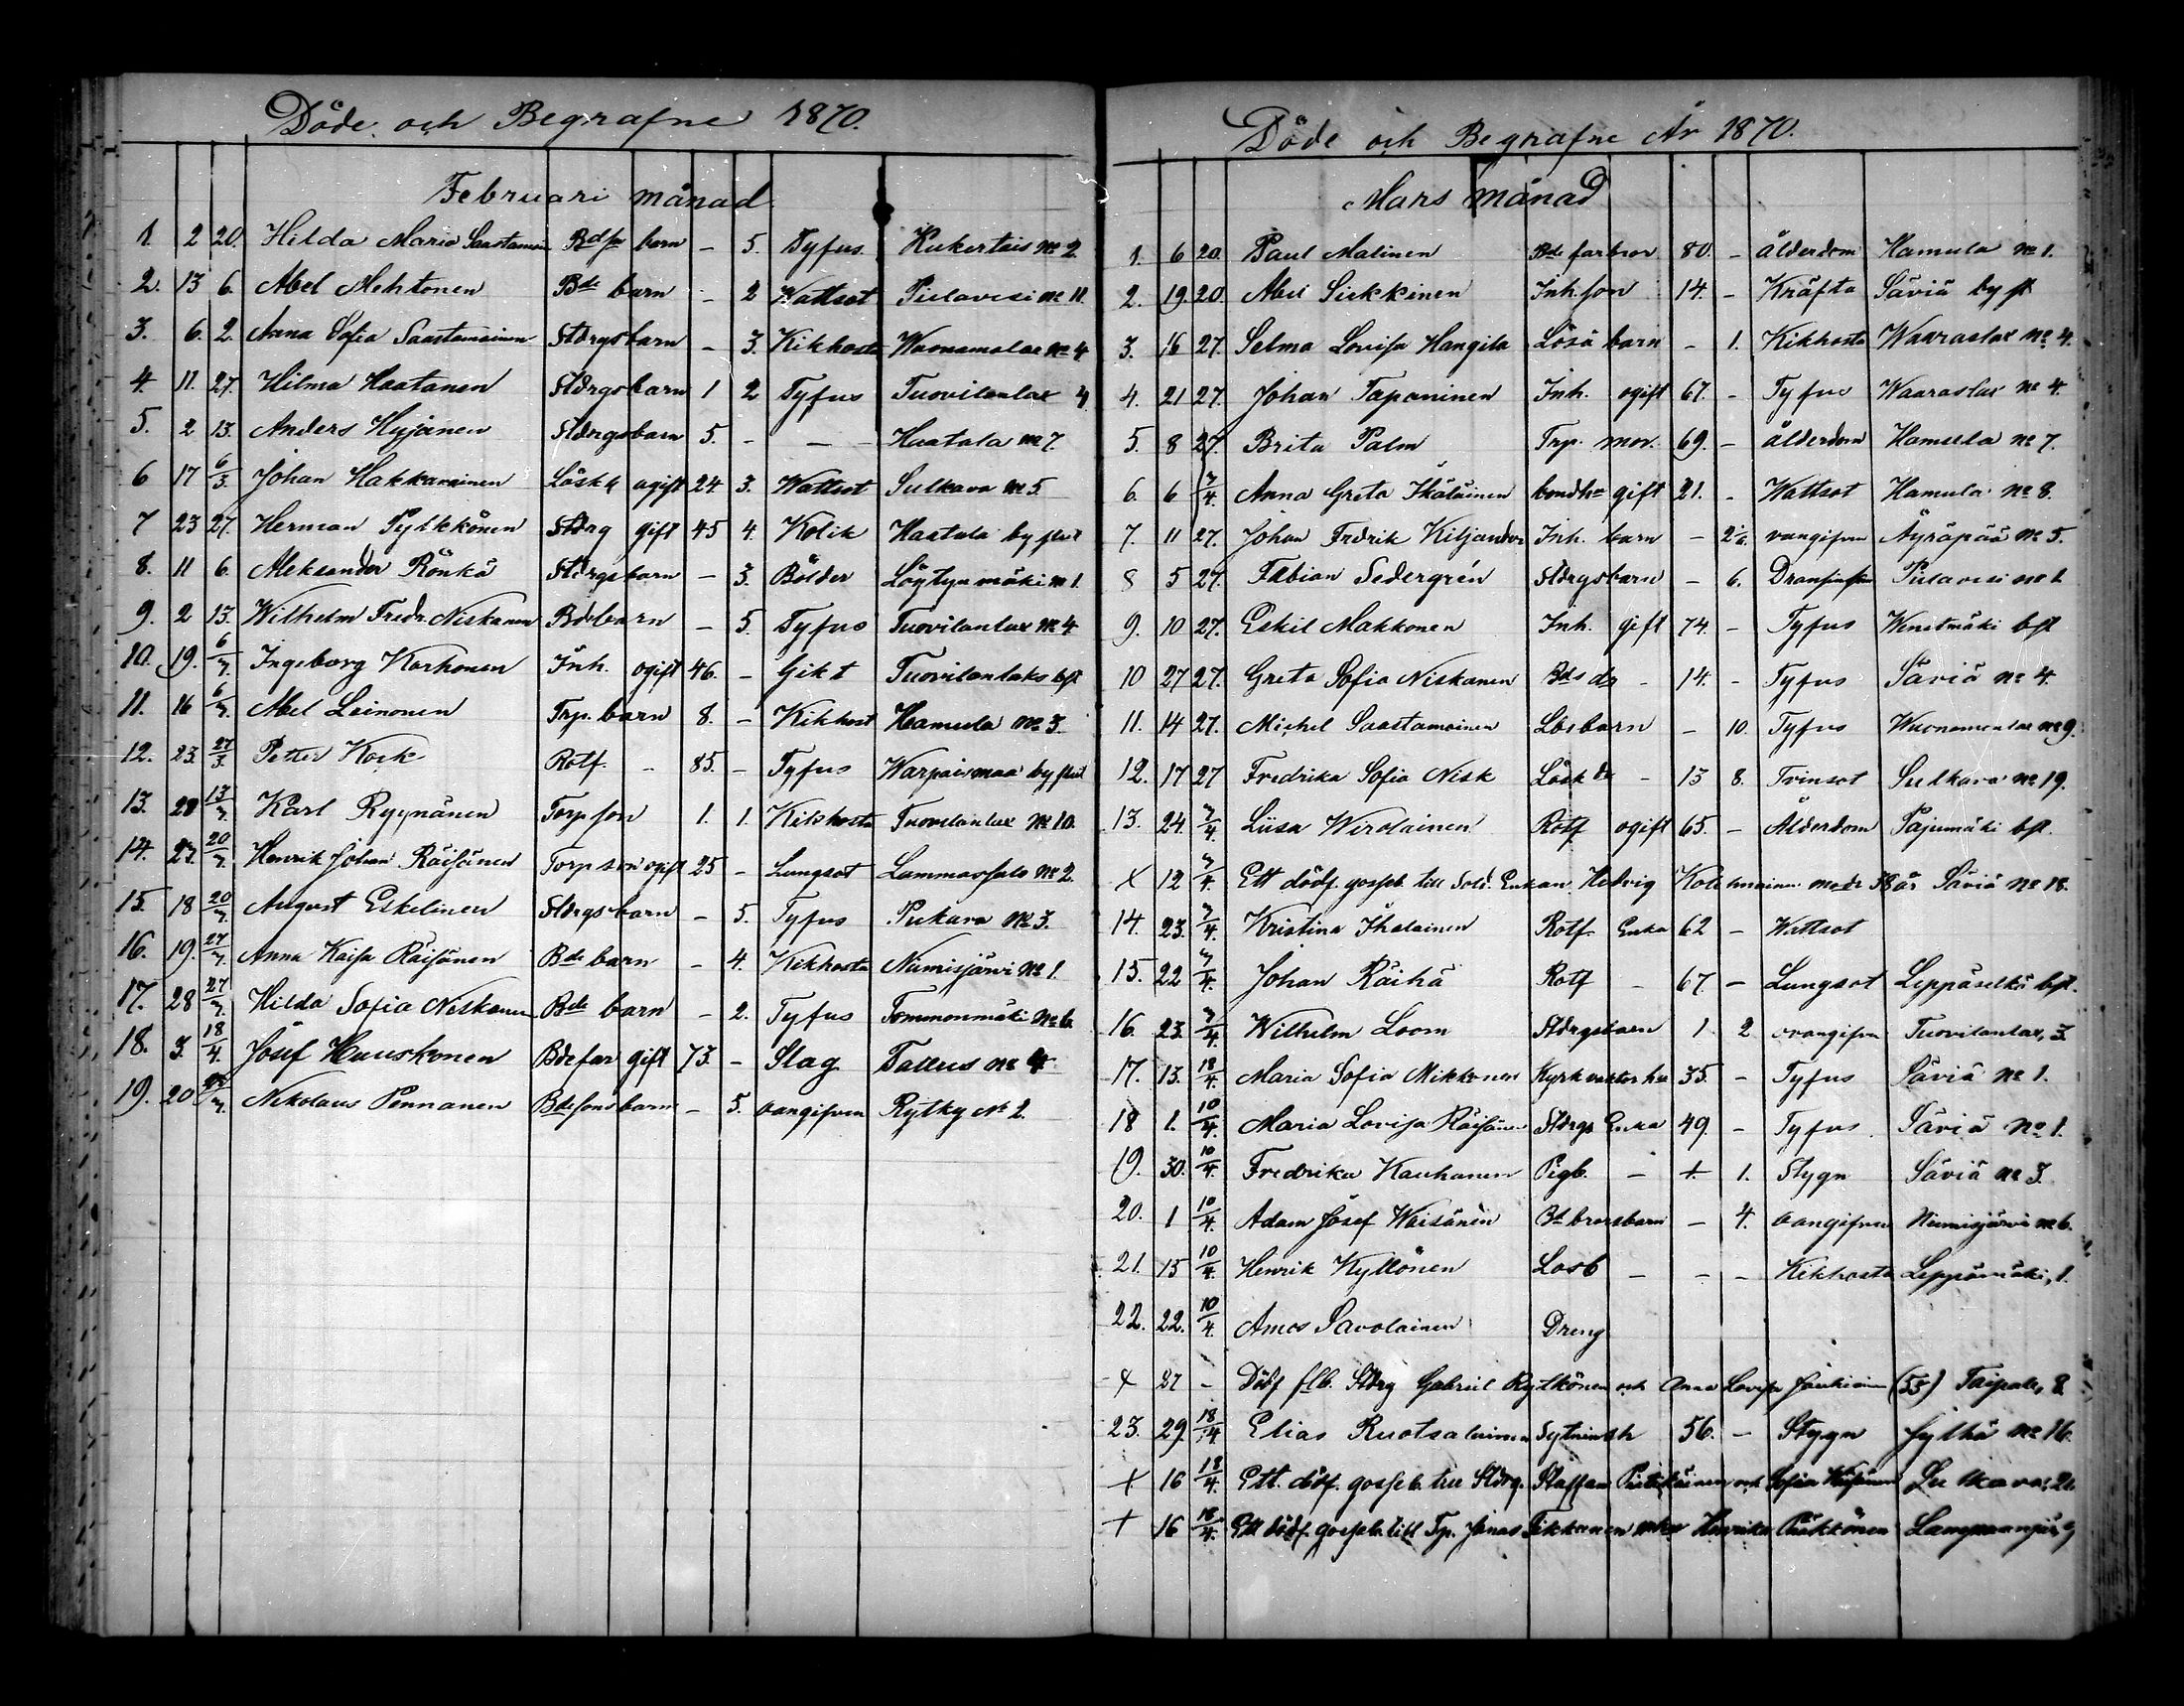 Döde och Begrafne 1870.
Februari månad
1. 2 20. Hilda Maria Saastamoin Bdss barn – 5. Tyfus. Kukertais No 2.
2. 13 6. Abel Mehtonen Bde barn – 2 Wattsot Pielavesi No 11.
3. 6. 2. Anna Sofia Saastamoinen Stdrgsbarn – 3. Kikhosta Wuonamolax No 4
4. 11. 27. Hilma Haatanen Stdrgsbarn 1 2 Tyfus Tuovilanlax 4
5. 2 13. Anders Hyjänen Stdrgsbarn 5. – – Haatala No 7.
6 17 6/3. Johan Hakkarainen Löskk ogift 24 3. Wattsot Sulkava No 5
7 23 27. Herman Pylkkönen Stdrg gift 45 4. Kolik Haatala by
8. 11 6. Aleksander Rönkä Stdrgsbarn – 3. Bölder Löytynmäki No 1.
9. 2 13. Wilhelm Fredr. Niskanen Bdebarn – 5. Tyfus Tuovilanlax No 4
10. 19. 6/3. Ingeborg Korhonen Inh. ogift 46. – Gikt Tuovilanlaks bfl
11. 16 6/3. Abel Leinonen Trp. barn 8. – Kikhost Hamula No 3.
12. 23. 27/3. Petter Kock Rotf. – 85. – Tyfus Warpaismaa by
13. 28 13/3. Karl Ryynänen Torpson 1. 1. Kikhosta Tuovilanlax No 10.
14. 23. 20/3. Henrik Johan Räisänen Torpson ogift 25 – Lungsot Lammassalo No 2.
15. 18 20/3. August Eskelinen Stdrgsbarn – 5. Tyfus Pukara No 3.
16. 19. 27/3. Anna Kaisa Räisänen Bde barn – 4. Kikhosta Niemisjärvi No 1.
17. 28 27/3. Hilda Sofia Niskanen Bde barn – 2. Tyfus Tommonmäki No 6.
18. 3. 18/4. Josef Huuskonen Bdefar gift 73. – Slag Tallus No 4
19. 20 Nikolaus Pennanen Bdesons barn – 5. oangifven Rytky No 2.
Döde och Begrafne År 1870.
Mars månad
1. 6 20. Paul Malinen Bde farbror 80. – ålderdom Hamula No 1.
2. 19 20. Abel Siekkinen Inh. son 14. – Kräfta Säviä by fl
3. 16 27. Selma Lovisa Hangila Lösd barn – 1. Kikhosta Waaraslax No 4.
4. 21 27. Johan Tapaninen Inh. ogift 67. – Tyfus Waaraslax No 4.
5. 8 27. Brita Palm Trp. mor. 69. – ålderdom Hamula No 7.
6. 6 3/4. Anna Greta Ikäläinen bondhu gift 21. – Wattsot Hamula No 8.
7. 11 27. Johan Fredrik Kiljander Inh. barn – oangifven Äyräpää No 5.
8 5 27. Fabian Sedergrén Stdrgsbarn – 6. Pielavesi No 1
9. 10 27. Eskil Makkonen Inh. gift 74. – Tyfus Wenetmäki bfl
10 27 27. Greta Sofia Niskanen Bds dr – 14. – Tyfus Säviä No 4.
11. 14 27. Michel Saastamoinen Lösbarn – 10. Tyfus Wuonamonlax No 9.
12. 17 27 Fredrika Sofia Nisk Lösk dr – 13 8. Tvinsot Sulkava No 19.
13. 24. 3/4. Liisa Wirolainen Rotf ogift 65. – Ålderdom Pajumäki bfl.
X 12 3/4. Ett dödf. gosseb. till Sold. Enkan Hedvig Kolehmainen modr 38 år Säviä No 18.
14. 23. 3/4. Kristina Ihalainen Rotf. Enka 62 – Wattsot
15. 22 3/4. Johan Räihä Rotf – 67. – Lungsot Leppäselkä bfl.
16. 23. 3/4. Wilhelm Loom Stdrgsbarn 1 2 oangifven Tuovilanlax, 3.
17. 13. 18/4. Maria Sofia Mikkonen Kyrkvaktor hu 35. – Tyfus Säviä No 1.
18 1. 10/4. Maria Lovisa Räisänen Stdrgs Enka 49. – Tyfus Säviä No 1.
19. 30. 10/4. Fredrika Kauhanen Pigb. – 1. Stygn Säviä No 3
20. 1 10/4. Adam Josef Waisänen Bd brorsbarn – 4. oangifven Niemisjärvi No 6.
21. 15 10/4. Henrik Kyllönen Losb – – – Kikhosta Leppämäki, 1.
22. 22. 10/4. Amos Savolainen Dreng
X 27 – Dödf flb. Stdrg Gabriel Rytkönen och Anna Lovisa (35) Taipale, 8.
23. 29. 18/4. Elias Ruotsalainen Sytninsh 56. – Stygn Jylhä No 16.
X 16 18/4. Ett dödf. gosseb. till Stdrg. Staffan och Sofia Sulkava, 21.
X 16 18/4. Ett dödf. gosseb. till Tp. Jonas Tikkanen Henrika